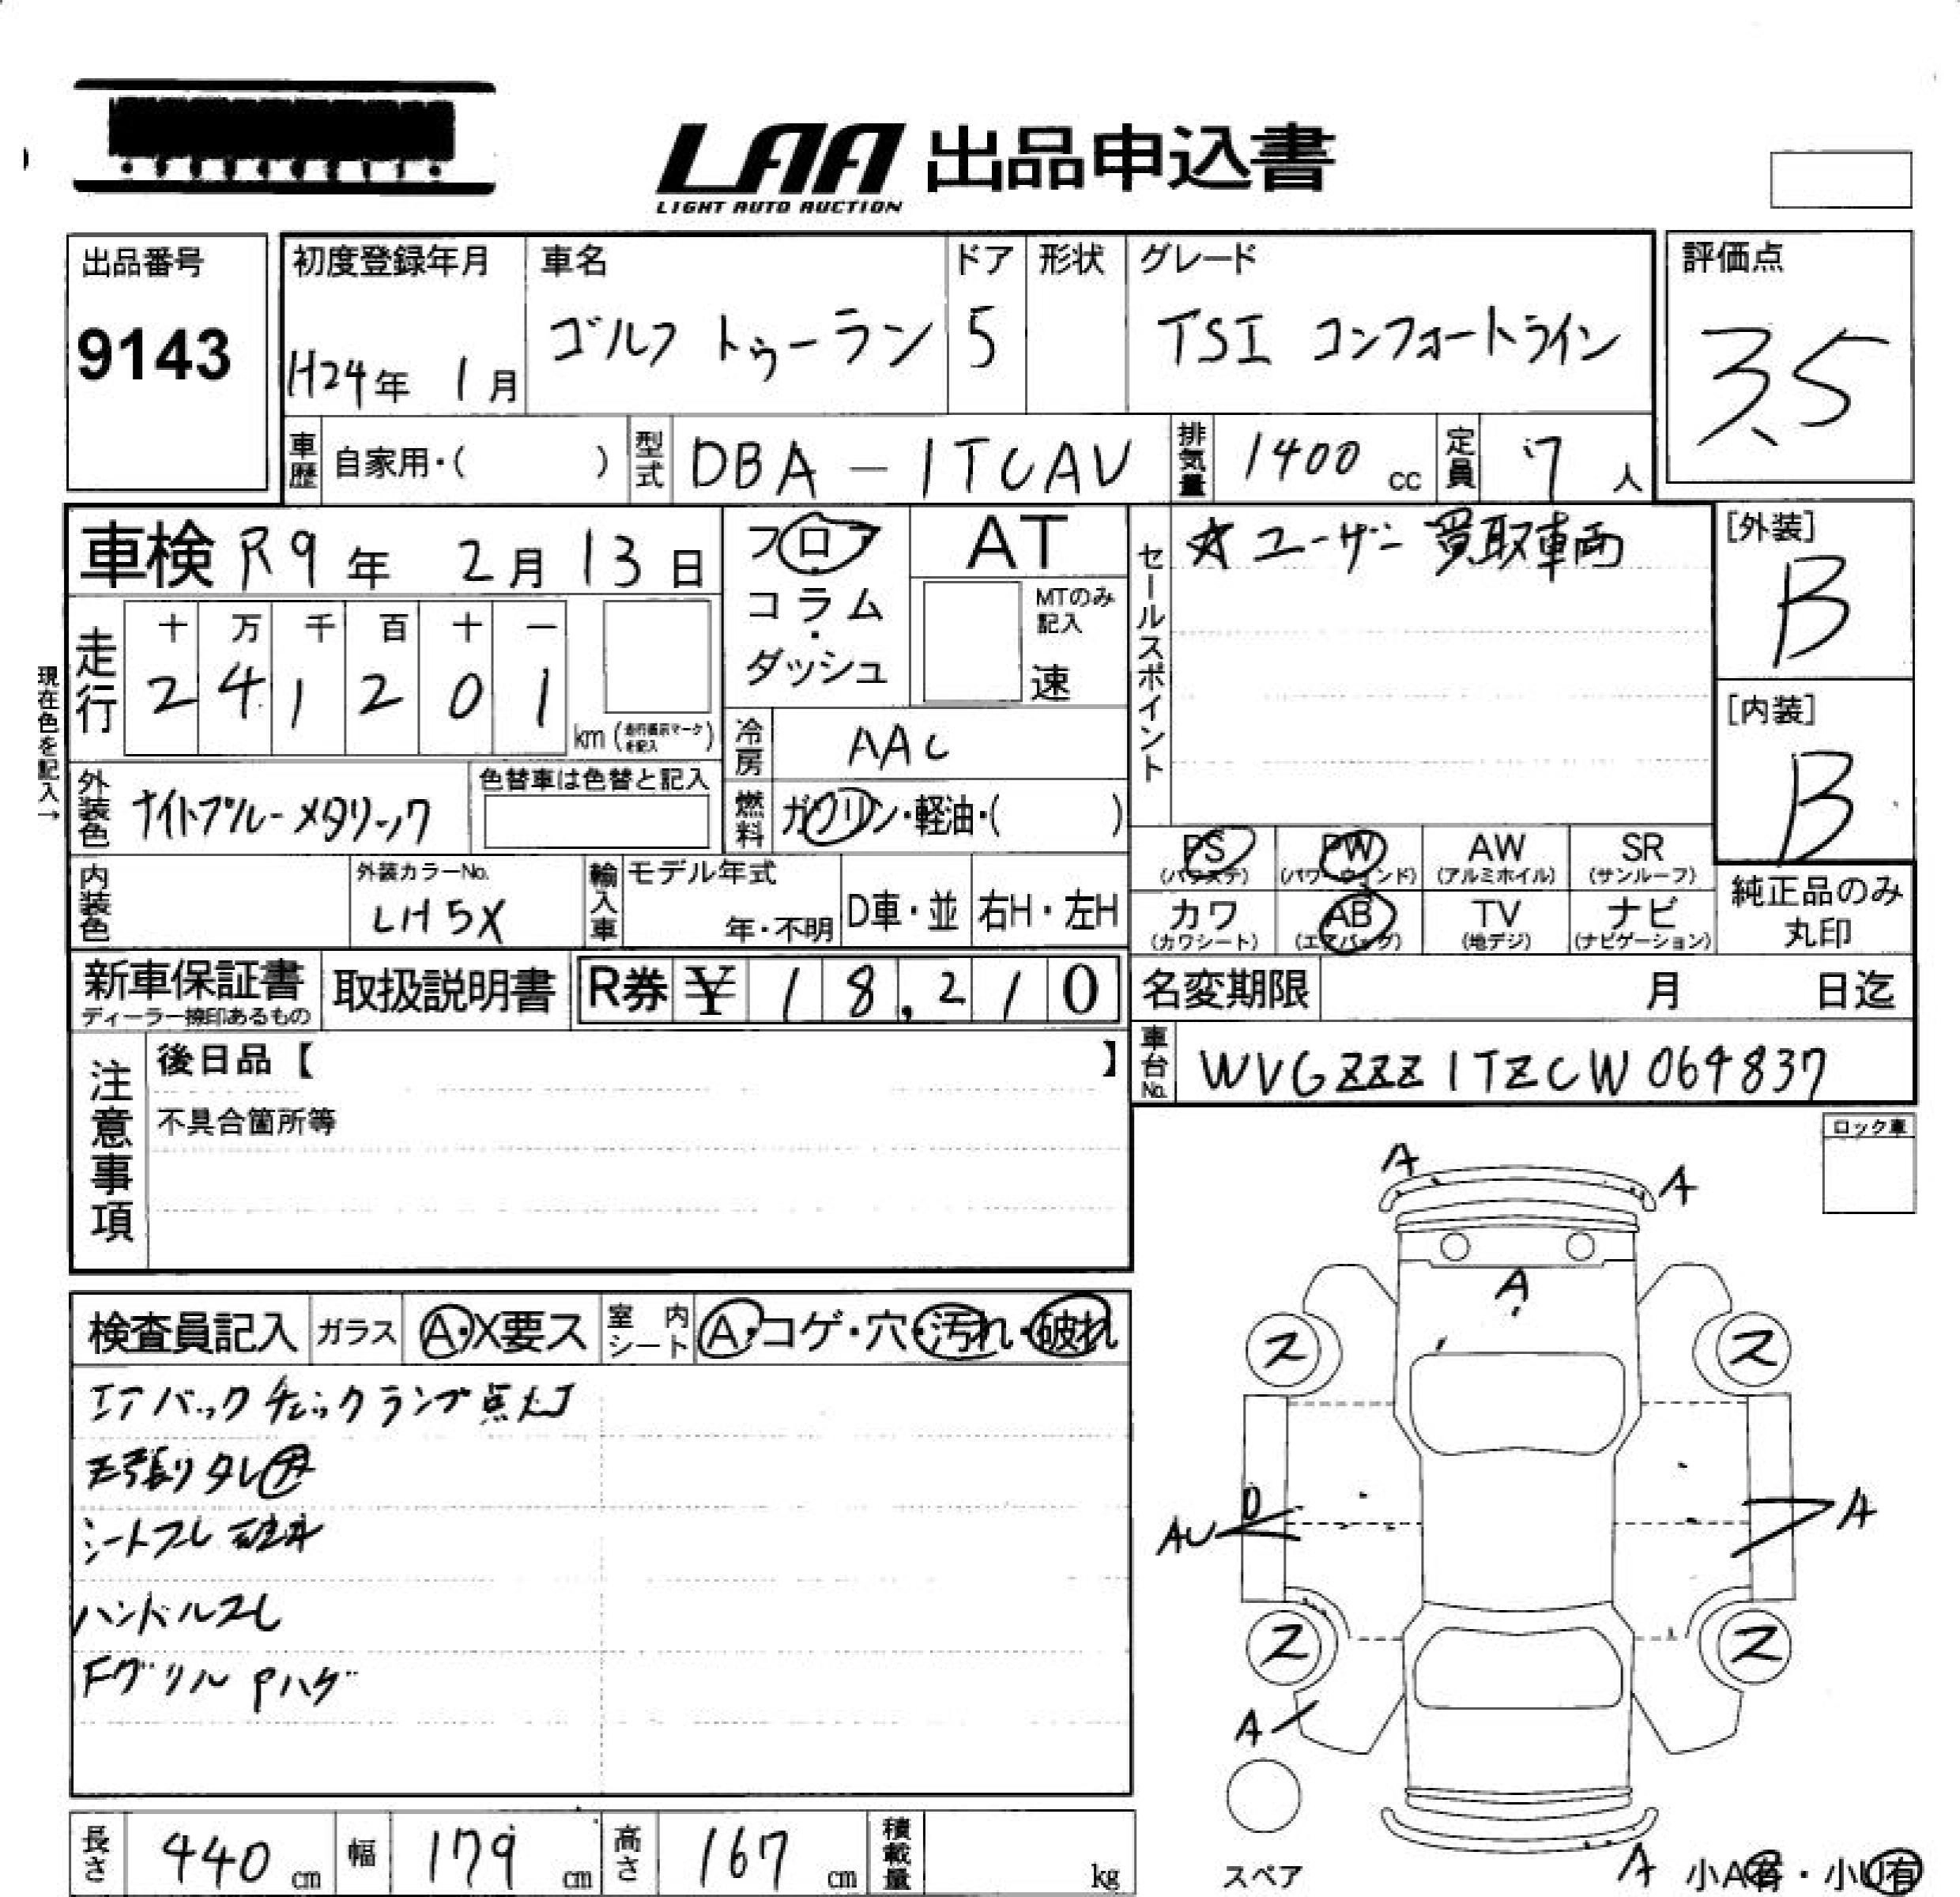 LAA 出品申込書
LIGHT AUTO AUCTION
出品番号
9143
初度登録年月
H24年 1月
車名
ゴルフ トゥーラン
ドア
5
形状
グレード
TSI コンフォートライン
評価点
3.5
車歴 自家用・( )
型式 DBA-1TCAV
排気量 1400 cc
定員 7人
車検 R9年 2月13日
フロア・コラム・ダッシュ
AT
MTのみ記入
速
セールスポイント
☆ユーザー買取車両
[外装]
B
[内装]
B
現在色を記入→
走行
十 万 千 百 十 一
2 4 1 2 0 1 km
冷房 AAC
外装色 ナイトブルーメタリック
色替車は色替と記入
燃料 ガソリン・軽油・( )
内装色
外装カラーNo.
LH5X
輸入車
モデル年式
年・不明
D車・並
右H・左H
PS (パワステ)
PW (パワーウインド)
AW (アルミホイル)
SR (サンルーフ)
カワ (カワシート)
AB (エアバッグ)
TV (地デジ)
ナビ (ナビゲーション)
純正品のみ丸印
新車保証書
取扱説明書
R券 ¥ 18,210
名変期限 月 日迄
車台No. WVGZZZ1TZCW064837
注意事項
後日品【 】
不具合箇所等
ロック車
検査員記入
ガラス A・X要ス
室内シート A・コゲ・穴・汚れ・破れ
エアバックチェックランプ点灯
天張りタレ大
シートスレ 破れ
ハンドルスレ
Fグリル Pハゲ
A
A
A
ス
ス
D
AU
A
ス
ス
A
スペア
A
小A有・小U有
長さ 440 cm
幅 179 cm
高さ 167 cm
積載量 kg